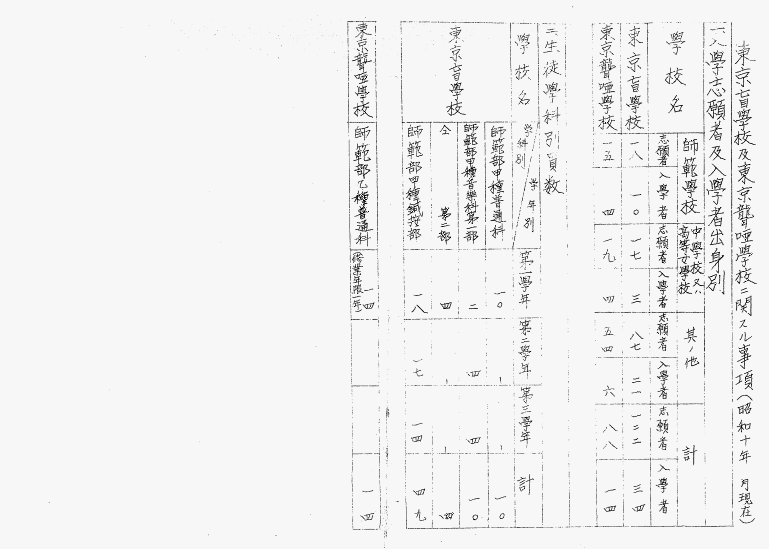 東京盲學校及東京聾啞學校ニ関スル事項(昭和十年 月現在)
一、入學志願者及入學者出身別
學校名 師範學校 中學校又ハ高等女學校 其ノ他 計
志願者 入學者 志願者 入學者 志願者 入學者 志願者 入學者
東京盲學校 一八 一〇 一七 三 八七 二一 一二二 三四
東京聾啞學校 一五 四 一九 四 五四 六 八八 一四
二、生徒學科別員数
學校名 學科別 學年別 第一學年 第二學年 第三學年 計
東京盲學校 師範部甲種普通科 一〇 - - 一〇
師範部甲種音樂科第一部 二 四 四 一〇
仝 第二部 四 - - 四
師範部甲種鍼按部 一八 一七 一四 四九
東京聾啞學校 師範部乙種普通科 (修業年限一年) 一四 一四